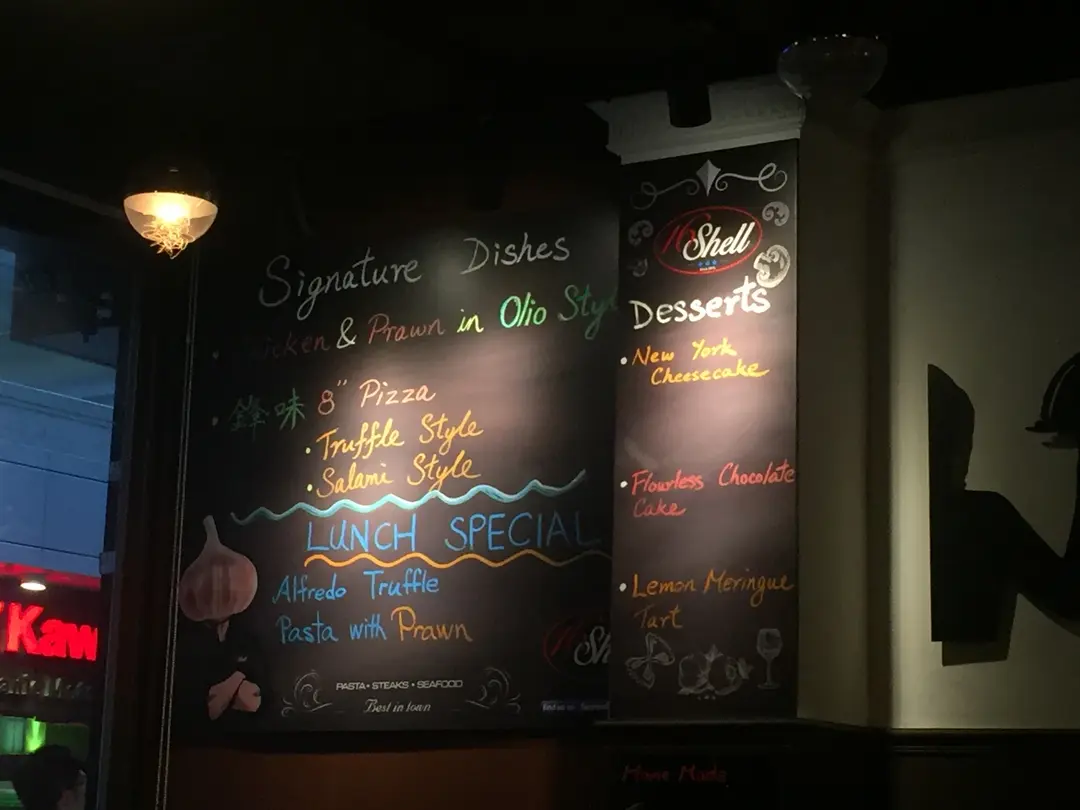 Signature Dishes
Chicken & Prawn in Olio Style
鋒味 8" Pizza
• Truffle Style
• Salami Style
LUNCH SPECIAL
Alfredo Truffle
Pasta with Prawn
PASTA • STEAKS • SEAFOOD
Best in town
16 Shell
Desserts
• New York
Cheesecake
• Flourless Chocolate
Cake
• Lemon Meringue
Tart
Home Made
Kaw